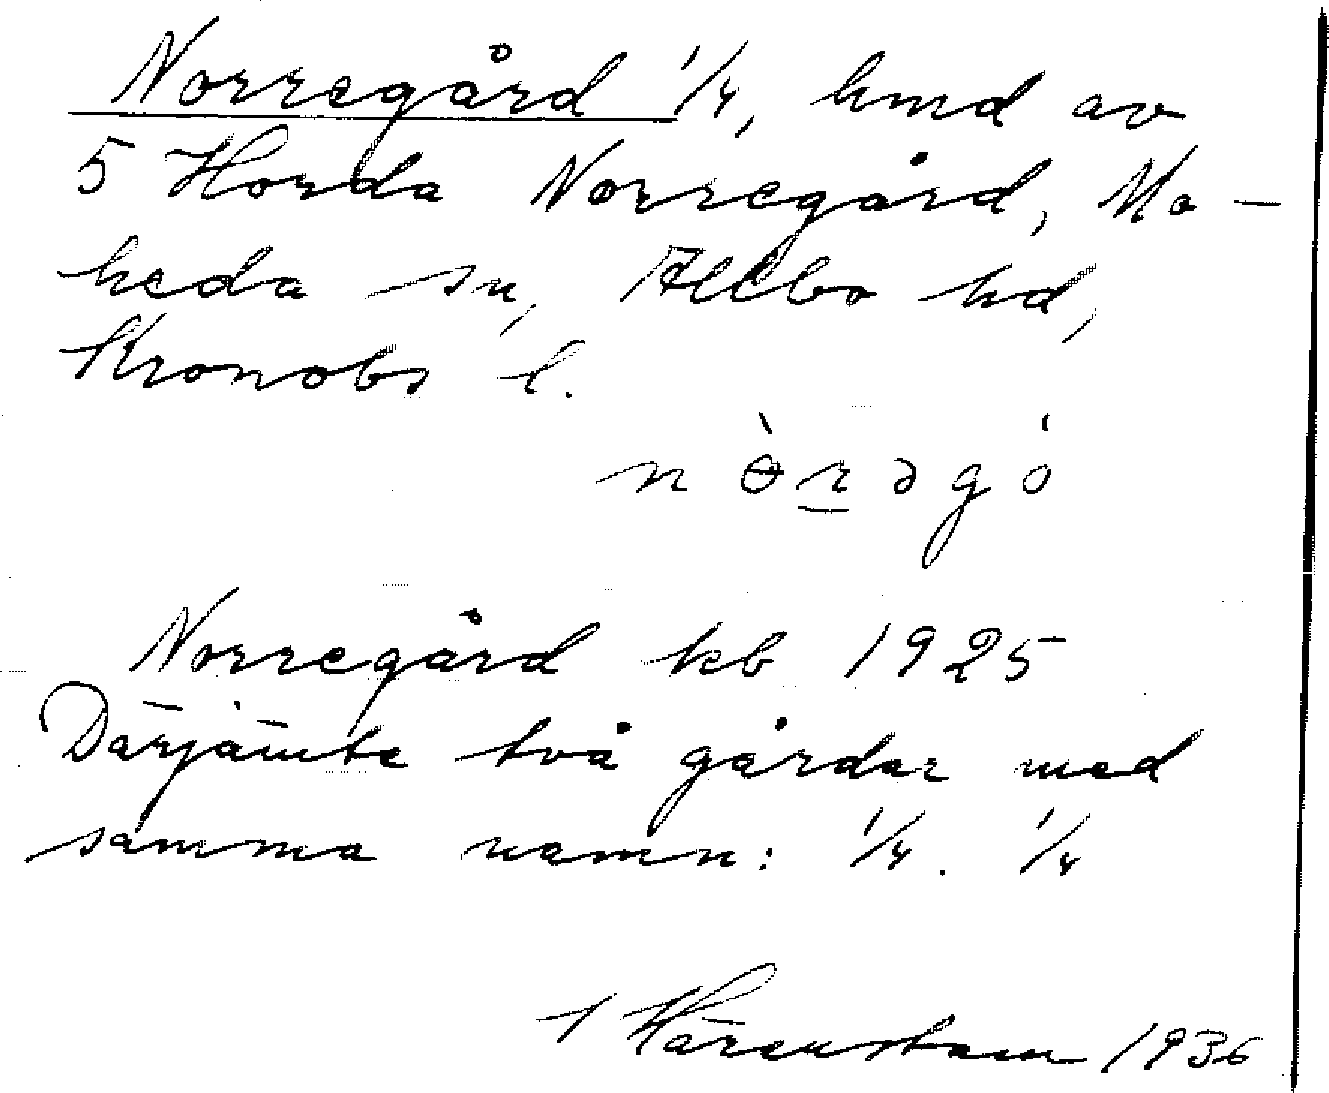 Norregård 1/4, hmd av
5 Horda Norregård, Mo-
heda sn, Allbo hd,
Kronobs l.
n ɵ̀ r ə g ó
Norregård kb 1925
Därjämte två gårdar med
samma namn: 1/4. 1/4
Härenstam 1936